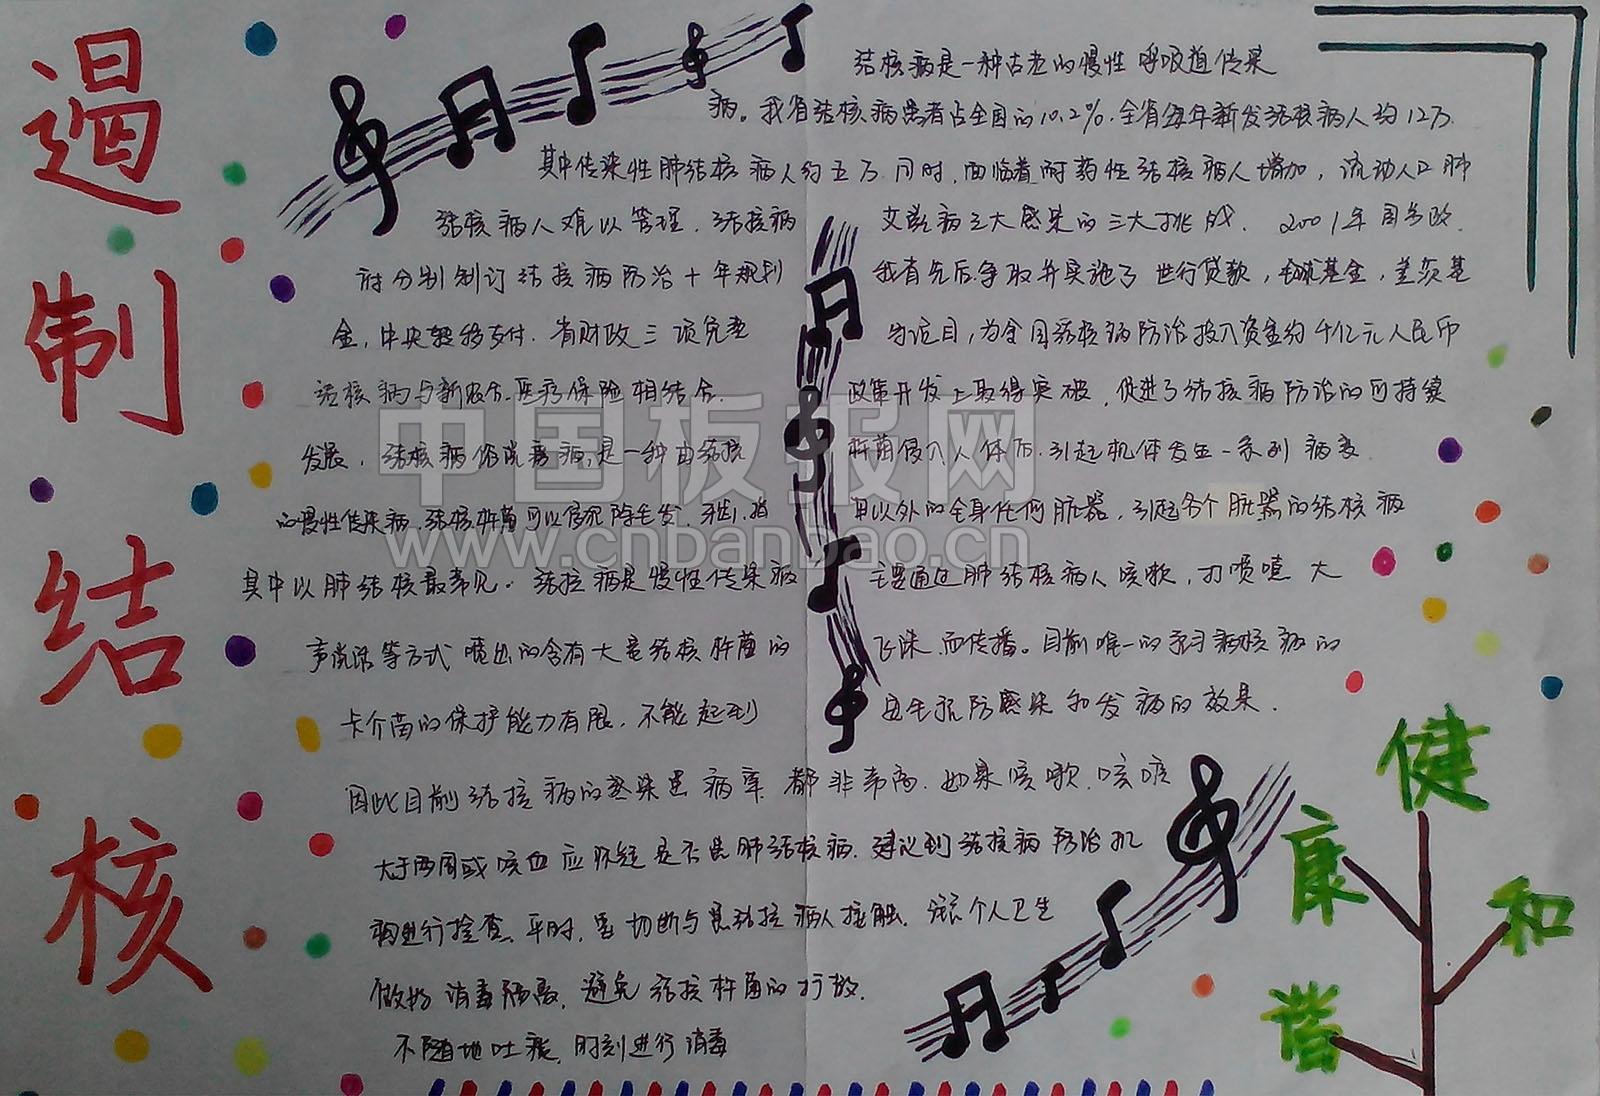 遏制结核
结核病是一种古老的慢性呼吸道传染
病。我省结核病患者占全国的10.2%.全省每年新发结核病人约12万.
其中传染性肺结核病人约五万同时,面临着耐药性结核病人增加,流动人口肺
结核病人难以管理.结核病 艾滋病三大感染的三大挑战. 2001年国务政.
府分别制订结核病防治十年规划 我省先后争取并实施了世行贷款,全球基金,盖茨基
金,中央转移支付.省财政三项免费 为全国结核病防治投入资金约千亿元人民币
结核病与新农合.医疗保险相结合. 政策开发上取得突破,促进了结核病防治的可持续
发展.结核病俗说痨病,是一种由结核 杆菌侵入人体后.引起机体发生一系列病变
的慢性传染病.结核杆菌可以侵犯除毛发.牙齿.指 甲以外的全身任何脏器,引起各个脏器的结核病
其中以肺结核最常见.结核病是慢性传染病 主要通过肺结核病人咳嗽,打喷嚏大
声说话等方式喷出的含有大量结核杆菌的 飞沫.而传播。目前唯一的
卡介苗的保护能力有限.不能起到 防感染和发病的效果.
因此目前结核病的感染 病率都非常高.如果咳嗽.咳痰
大于两周或咳血应怀疑是否患肺结核病.建议到结核病防治机
构进行检查.平时,要切断与患结核病人接触. 个人卫生
做好消毒隔离.避免结核杆菌的扩散.
不随地吐痰.时刻进行消毒
健康
和谐
中国板报网
www.cnbanbao.cn